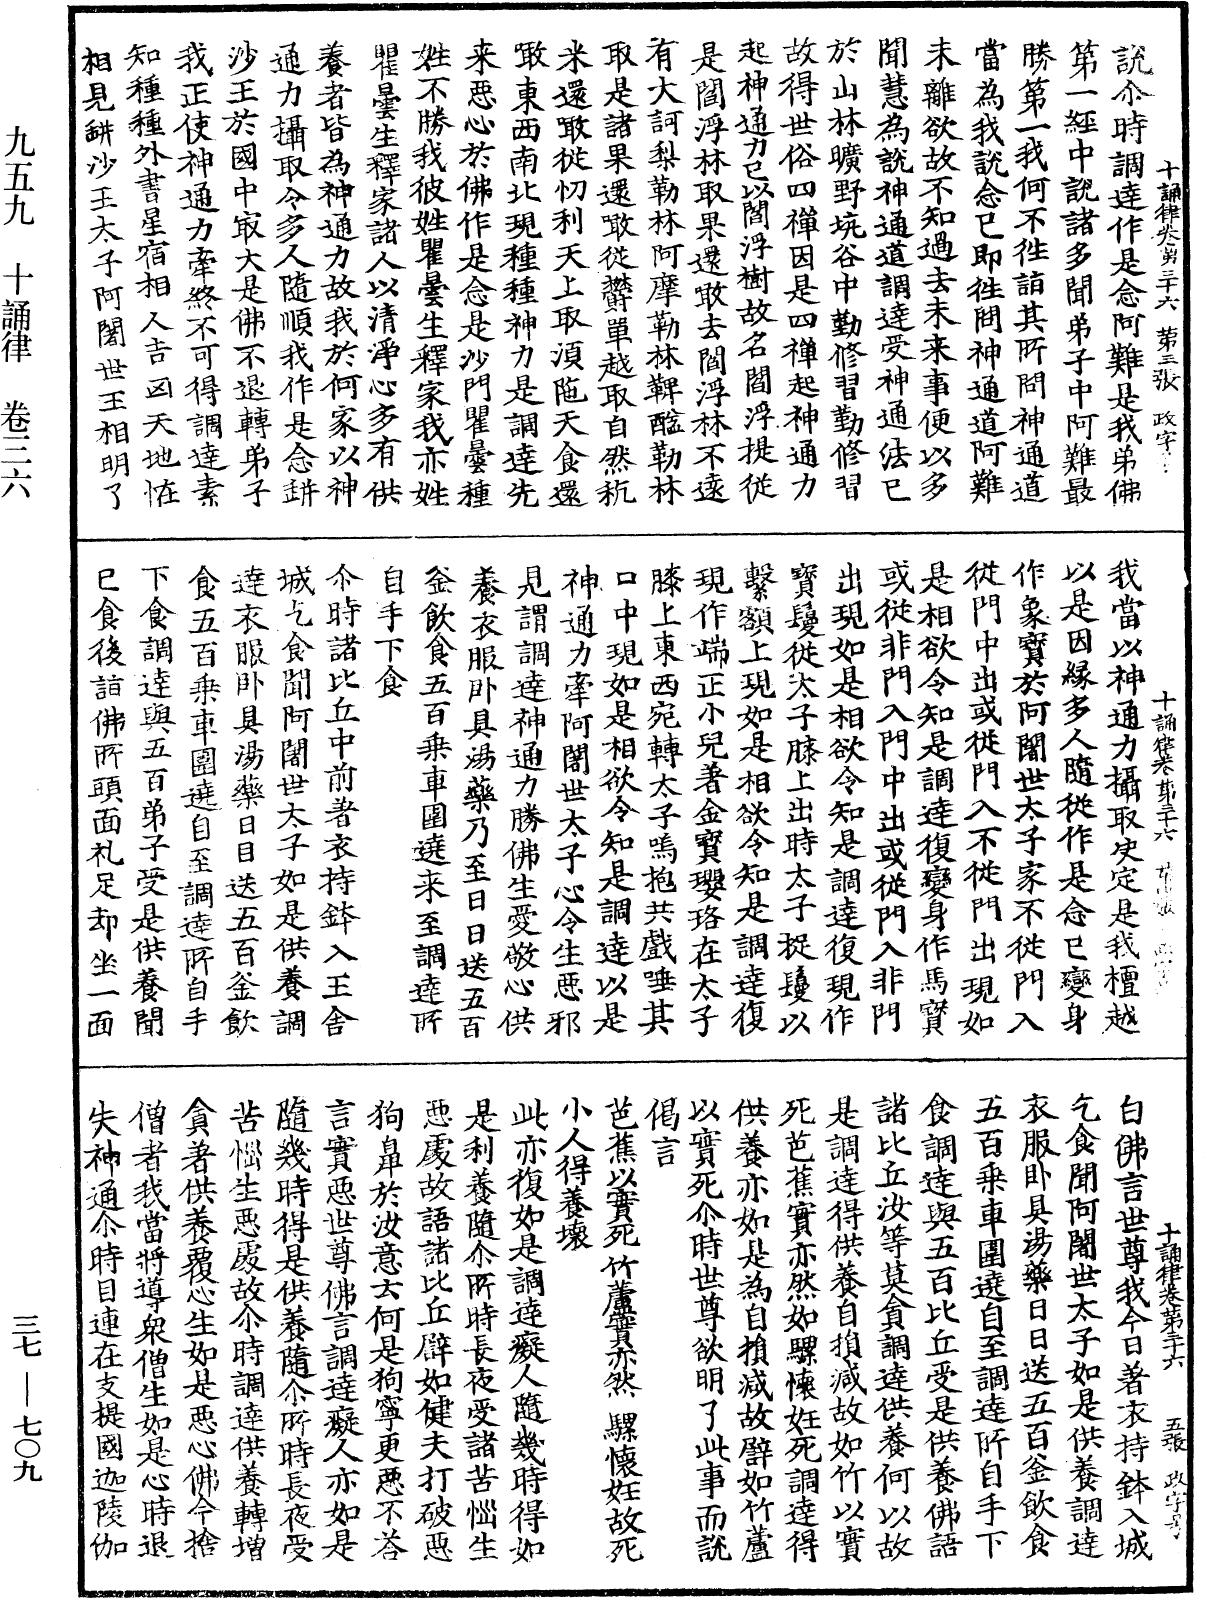 說尒時調達作是念阿難是我弟佛
第一經中說諸多聞弟子中阿難最
勝第一我何不徃詣其所問神通道
當為我說念已即徃問神通道阿難
未離欲故不知過去未来事便以多
聞慧為說神通道調達受神通法已
於山林曠野坑谷中勤修習勤修習
故得世俗四禪因是四禪起神通力
起神通力已以閻浮樹故名閻浮提從
是閻浮林取果還噉去閻浮林不遠
有大訶梨勒林阿摩勒林鞞醯勒林
取是諸果還噉從欝單越取自然秔
米還噉從忉利天上取湏陁天食還
噉東西南北現種種神力是調達先
来惡心於佛作是念是沙門瞿曇種
姓不勝我彼姓瞿曇生釋家我亦姓
瞿曇生釋家諸人以清淨心多有供
養者皆為神通力故我於何家以神
通力攝取令多人隨順我作是念缾
沙王於國中㝡大是佛不退轉弟子
我正使神通力牽終不可得調達素
知種種外書星宿相人吉凶天地恠
相見缾沙王太子阿闍世王相明了
我當以神通力攝取決定是我檀越
以是因縁多人隨從作是念已變身
作象寶於阿闍世太子家不從門入
從門中出或從門入不從門出現如
是相欲令知是調達復變身作馬寶
或從非門入門中出或從門入非門
出現如是相欲令知是調達復現作
寶鬘從太子膝上出時太子捉鬘以
繫額上現如是相欲令知是調達復
現作端正小兒著金寶瓔珞在太子
膝上東西宛轉太子嗚抱共戲唾其
口中現如是相欲令知是調達以是
神通力牽阿闍世太子心令生惡邪
見謂調達神通力勝佛生愛敬心供
養衣服卧具湯藥乃至日日送五百
釜飲食五百乗車圍遶来至調達所
自手下食
尒時諸比丘中前著衣持鉢入王舍
城乞食聞阿闍世太子如是供養調
達衣服卧具湯藥日日送五百釜飲
食五百乗車圍遶自至調達所自手
下食調達與五百弟子受是供養聞
已食後詣佛所頭面礼足却坐一面
白佛言世尊我今日著衣持鉢入城
乞食聞阿闍世太子如是供養調達
衣服卧具湯藥日日送五百釜飲食
五百乗車圍遶自至調達所自手下
食調達與五百比丘受是供養佛語
諸比丘汝等莫貪調達供養何以故
是調達得供養自損減故如竹以實
死芭蕉實亦然如騾懷妊死調達得
供養亦如是為自損減故譬如竹蘆
以實死尒時世尊欲明了此事而說
偈言
芭蕉以實死 竹蘆實亦然 騾懷妊故死
小人得養壞
此亦復如是調達癡人隨幾時得如
是利養隨尒所時長夜受諸苦惱生
惡處故語諸比丘譬如健夫打破惡
狗鼻於汝意云何是狗寧更惡不荅
言實惡世尊佛言調達癡人亦如是
隨幾時得是供養隨尒所時長夜受
苦惱生惡處故尒時調達供養轉增
貪著供養覆心生如是惡心佛今捨
僧者我當將導衆僧生如是心時退
失神通尒時目連在支提國迦陵伽
十誦律卷第三十六 第三張 政字
十誦律卷第三十六
十誦律卷第三十六 五張 政字号
九五九 十誦律 卷三六
三七 — 七〇九